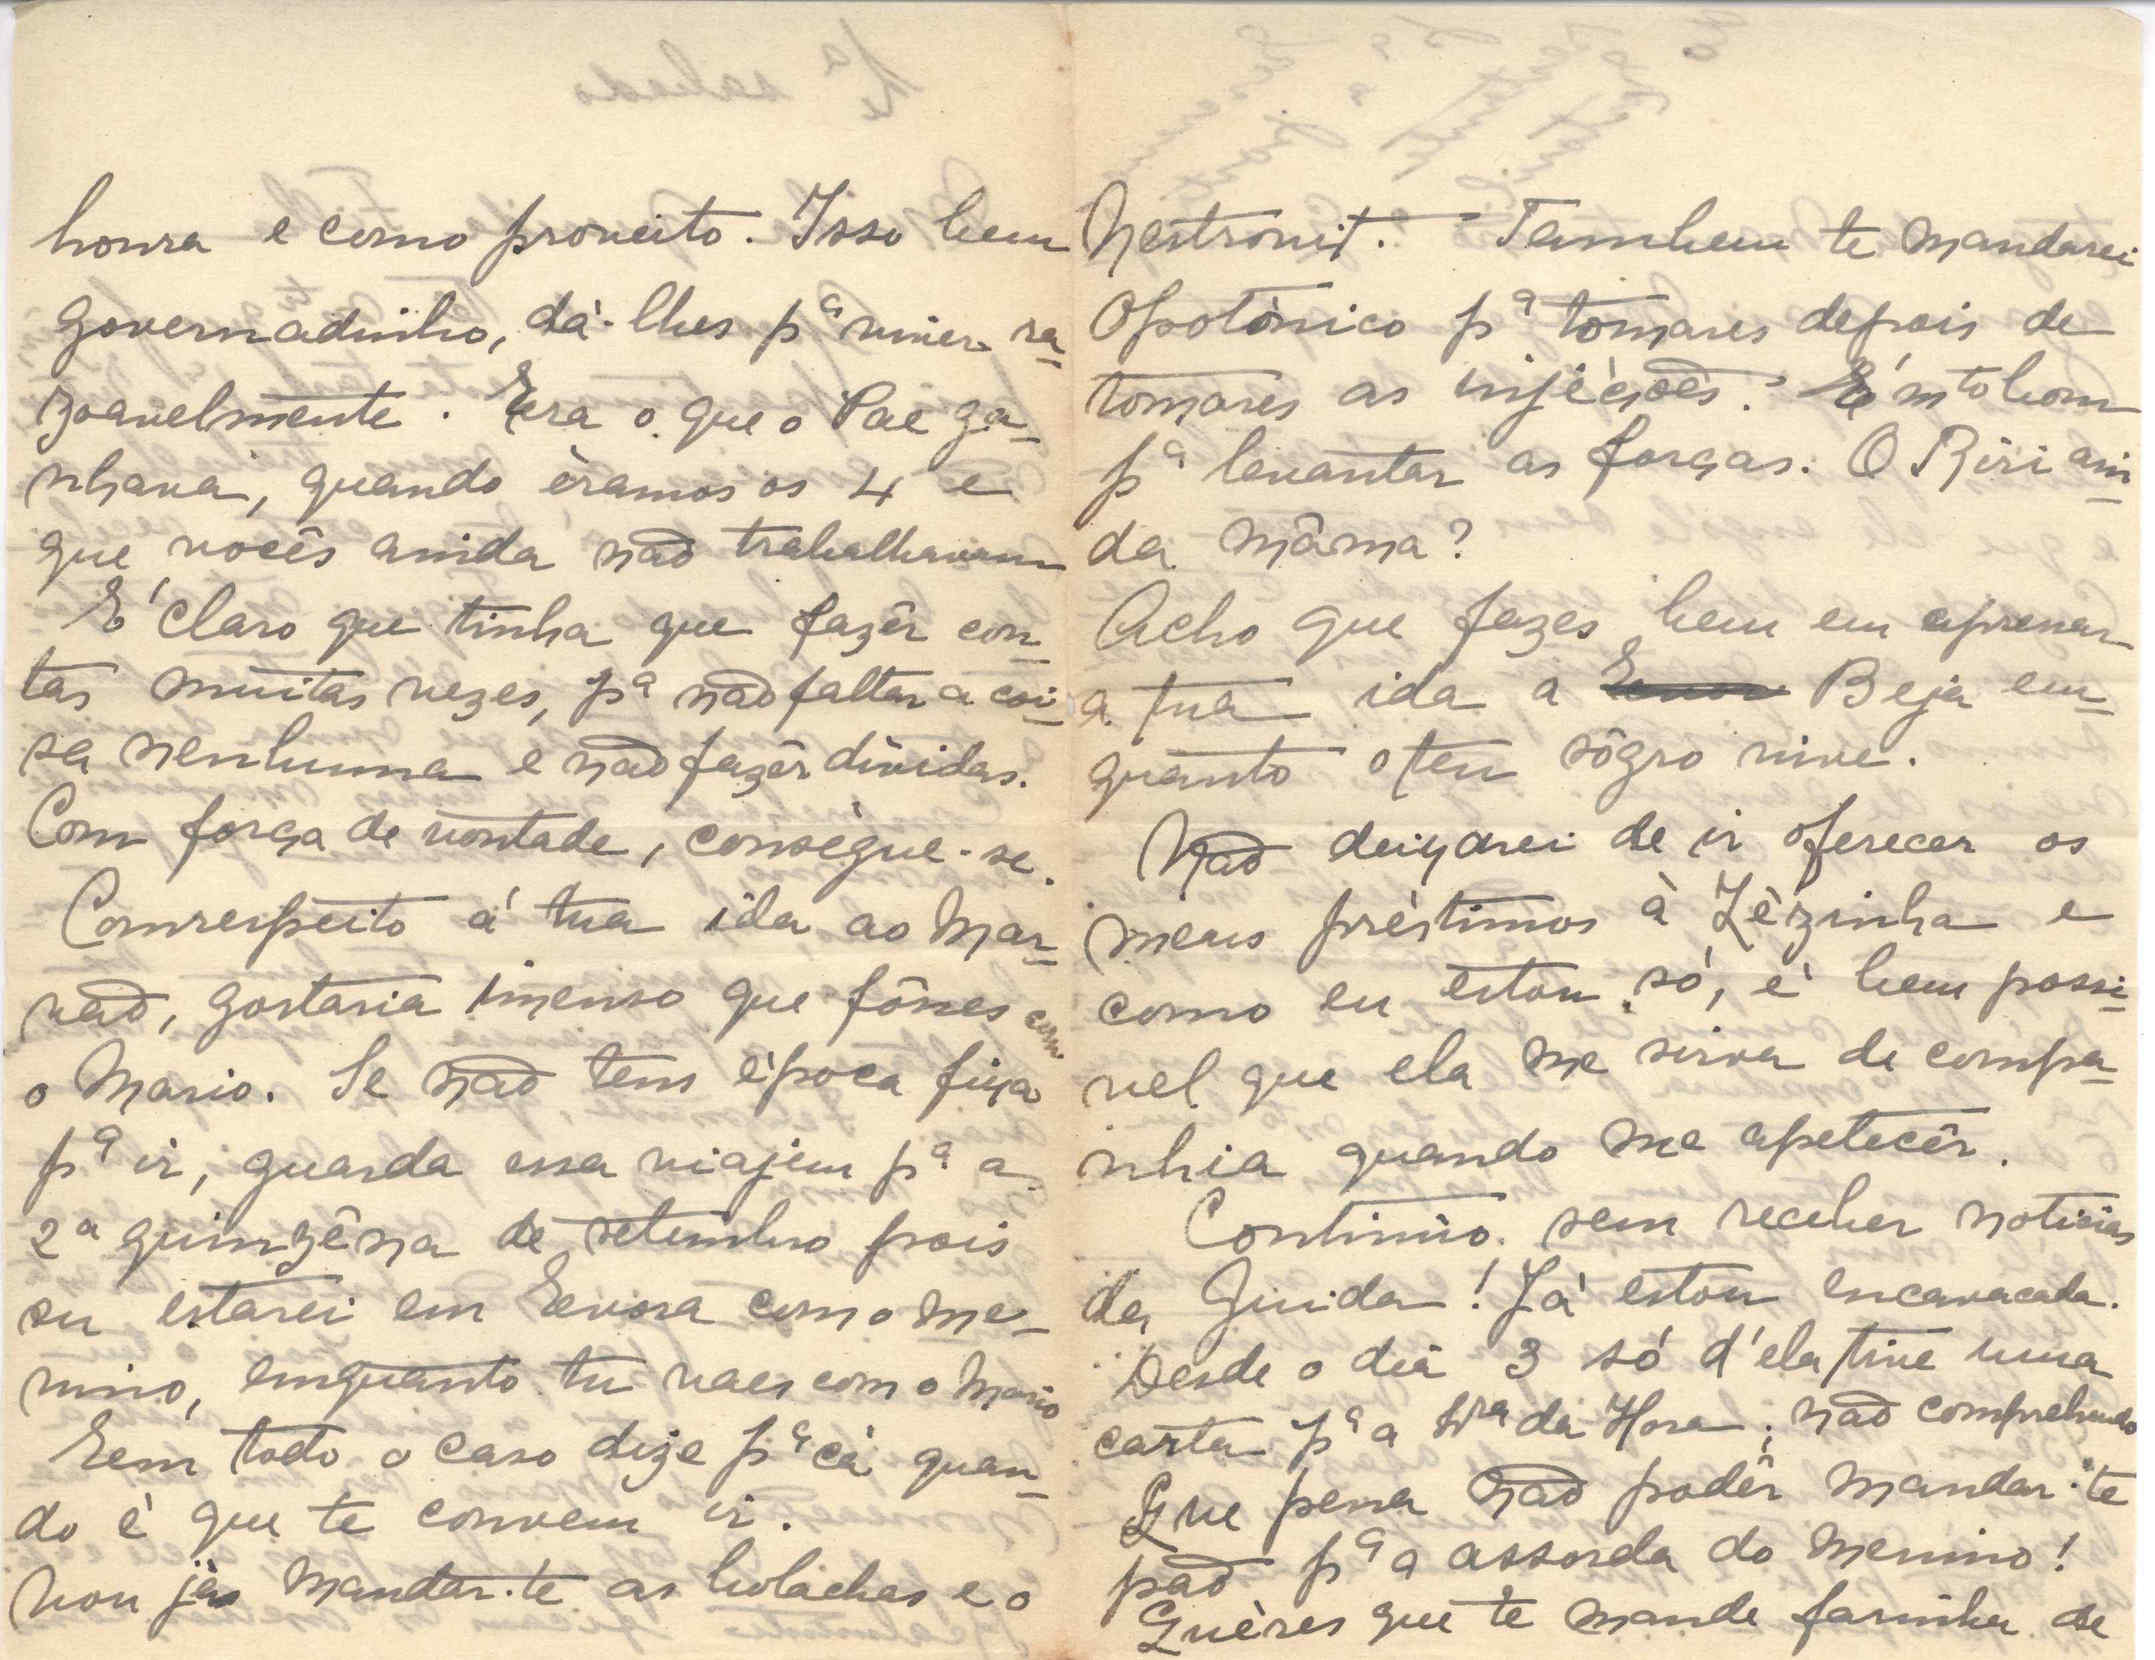 honra e como proveito. Isso bem
governadinho, dá-lhes pª viver ra-
zoavelmente. Era o que o Pae ga-
nhava, quando èramos os 4 e
que vocês ainda não trabalhavam
É claro que tinha que fazêr con-
tas muitas vezes, pª não faltar a coi-
sa nenhuma e não fazêr dividas.
Com força de vontade, consègue-se.
Com respeito á tua ida ao Mar-
vão, gostaria imenso que fôsses com
o Mario. Se não tens època fixa
pª ir, guarda essa viajem pª a
2ª quinzêna de setembro pois
eu estarei em Evora com o me-
nino, emquanto tu vaes com o Mario
Em todo o caso dize pª cá quan-
do è que te convem ir.
Vou já mandar-te as bolachas e o
Nestrovit. Tambem te mandarei
Opotònico pª tomares depois de
tomares as injècções. É mto bom
pª levantar as forças. O Riri ain-
da mâma?
Acho que fazes bem em aprovar
a tua ida a Beja em-
quanto o teu sôgro vive.
Não deixarei de ir oferecer os
meus prèstimos à Zèzinha e
como eu estou só, è bem possi-
vel que ela me sirva de compa-
nhia quando me apetecêr.
Continùo sem receber noticias
da Guida! Já estou encavacada.
Desde o dia 3 só d'ela tive uma
carta pª a Srª da Hora; não comprehendo
Que pena não podêr mandar-te
pão pª a assorda do menino!
Quères que te mande farinha de
1ª sabado